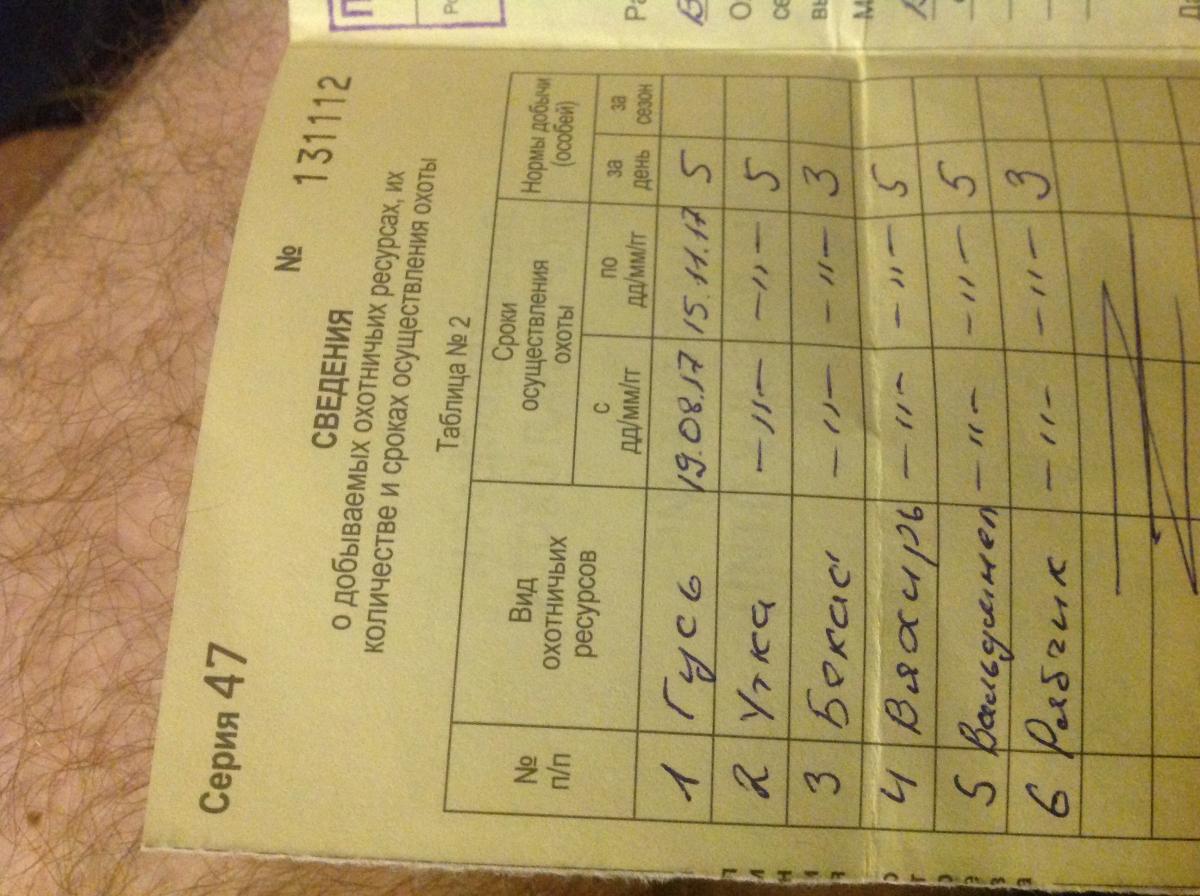 Серия 47 № 131112
СВЕДЕНИЯ
о добываемых охотничьих ресурсах, их
количестве и сроках осуществления охоты
Таблица № 2
№ п/п Вид охотничьих ресурсов Сроки осуществления охоты Нормы добычи (особей)
с дд/мм/гг по дд/мм/гг за день за сезон
1 Гусь 19.08.17 15.11.17 5
2 Утка -"- -"- 5
3 Бекас -"- -"- 3
4 Вяхирь -"- -"- 5
5 Вальдшнеп -"- -"- 5
6 Рябчик -"- -"- 3